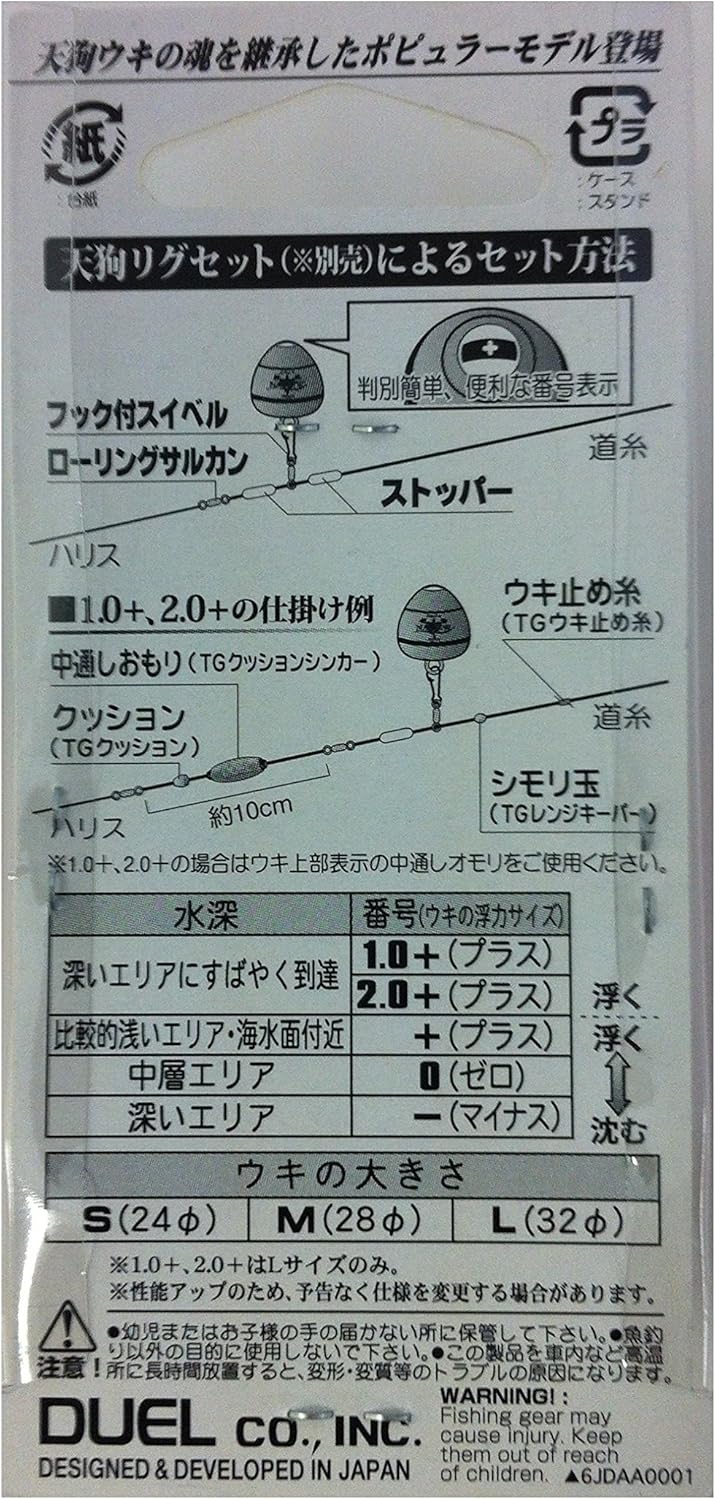 天狗ウキの魂を継承したポピュラーモデル登場
紙
:台紙
プラ
:ケース
:スタンド
天狗リグセット(※別売)によるセット方法
判別簡単、便利な番号表示
フック付スイベル
ローリングサルカン
道糸
ストッパー
ハリス
■1.0+、2.0+の仕掛け例
ウキ止め糸
(TGウキ止め糸)
中通しおもり(TGクッションシンカー)
クッション
(TGクッション)
道糸
約10cm
シモリ玉
(TGレンジキーパー)
ハリス
※1.0+、2.0+の場合はウキ上部表示の中通しオモリをご使用ください。
水深 番号(ウキの浮力サイズ)
深いエリアにすばやく到達 1.0+(プラス)
2.0+(プラス) 浮く
比較的浅いエリア・海水面付近 +(プラス) 浮く
中層エリア 0(ゼロ)
深いエリア −(マイナス) 沈む
ウキの大きさ
S(24φ) M(28φ) L(32φ)
※1.0+、2.0+はLサイズのみ。
※性能アップのため、予告なく仕様を変更する場合があります。
注意!
●幼児またはお子様の手の届かない所に保管して下さい。●魚釣
り以外の目的に使用しないで下さい。●この製品を車内など高温
所に長時間放置すると、変形・変質等のトラブルの原因になります。
DUEL CO., INC.
DESIGNED & DEVELOPED IN JAPAN
WARNING! :
Fishing gear may
cause injury. Keep
them out of reach
of children. ▲6JDAA0001